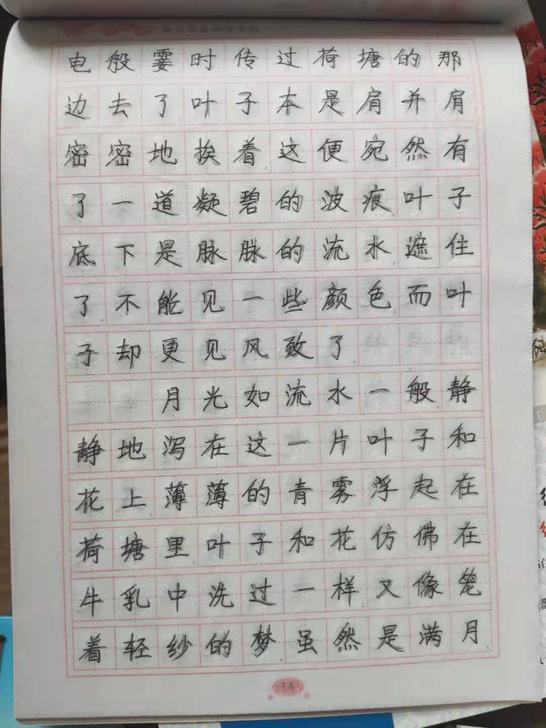 电般霎时传过荷塘的那
边去了叶子本是肩并肩
密密地挨着这便宛然有
了一道凝碧的波痕叶子
底下是脉脉的流水遮住
了不能见一些颜色而叶
子却更见风致了
月光如流水一般静
静地泻在这一片叶子和
花上薄薄的青雾浮起在
荷塘里叶子和花仿佛在
牛乳中洗过一样又像笼
着轻纱的梦虽然是满月
14